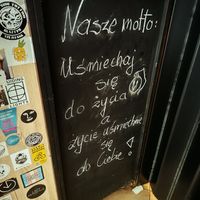 Nasze motto:
Uśmiechaj
się
do życia
a
życie uśmiechnie
się
do Ciebie!